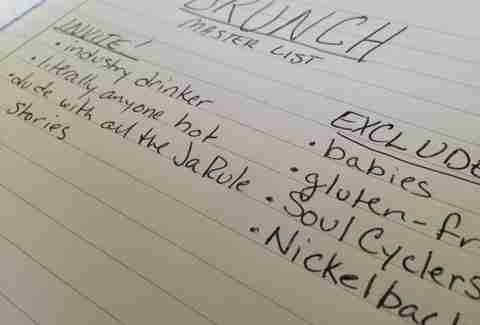 BRUNCH
MASTER LIST
INVITE!
• industry drinker
• literally anyone hot
• dude with all the JaRule
stories
EXCLUDE
• babies
• gluten-fr
• Soul Cyclers
• Nickelbac